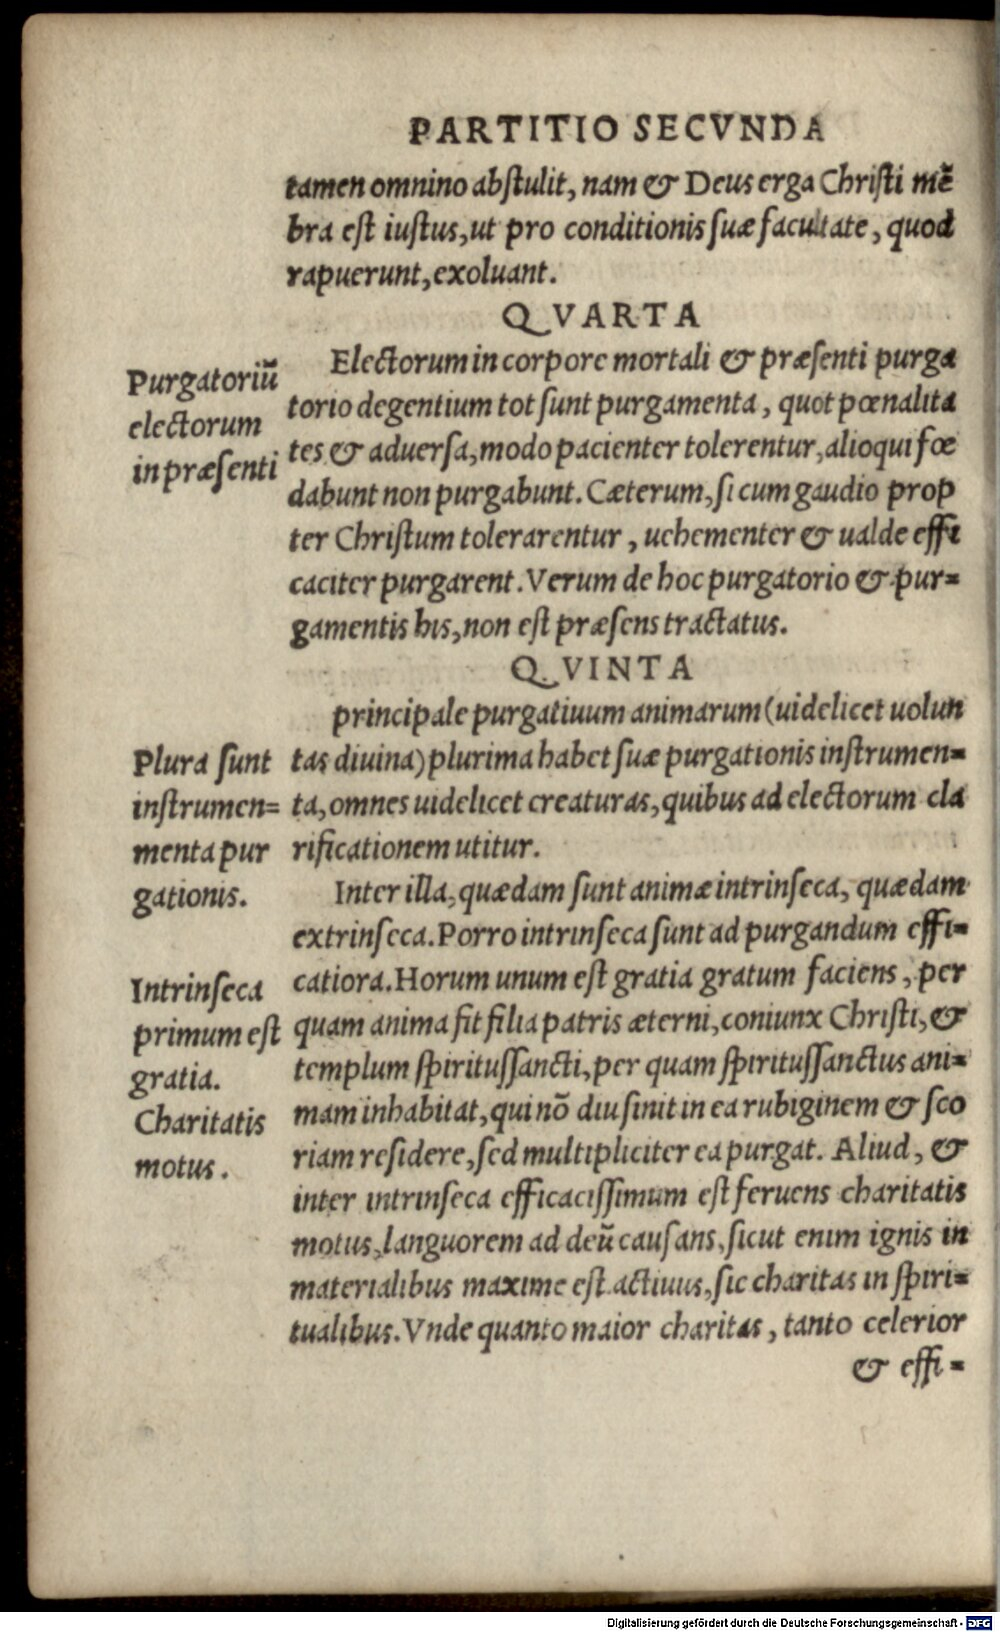 PARTITIO SECVNDA
tamen omnino abstulit, nam & Deus erga Christi mẽ
bra est iustus, ut pro conditionis suæ facultate, quod
rapuerunt, exoluant.
QVARTA
Purgatoriũ
electorum
in præsenti
Electorum in corpore mortali & præsenti purga
torio degentium tot sunt purgamenta, quot pœnalita
tes & aduersa, modo pacienter tolerentur, alioqui fœ
dabunt non purgabunt. Cæterum, si cum gaudio prop
ter Christum tolerarentur, uehementer & ualde effi
caciter purgarent. Verum de hoc purgatorio & pur=
gamentis his, non est præsens tractatus.
QVINTA
Plura sunt
instrumen=
menta pur
gationis.
principale purgatiuum animarum (uidelicet uolun
tas diuina) plurima habet suæ purgationis instrumen=
ta, omnes uidelicet creaturas, quibus ad electorum cla
rificationem utitur.
Intrinseca
primum est
gratia.
Charitatis
motus.
Inter illa, quædam sunt animæ intrinseca, quædam
extrinseca. Porro intrinseca sunt ad purgandum effi=
catiora. Horum unum est gratia gratum faciens, per
quam anima fit filia patris æterni, coniunx Christi, &
templum spiritussancti, per quam spiritussanctus ani=
mam inhabitat, qui nõ diu sinit in ea rubiginem & sco
riam residere, sed multipliciter ea purgat. Aliud, &
inter intrinseca efficacissimum est feruens charitatis
motus, languorem ad deũ causans, sicut enim ignis in
materialibus maxime est actiuus, sic charitas in spiri=
tualibus. Vnde quanto maior charitas, tanto celerior
& effi=
Digitalisierung gefördert durch die Deutsche Forschungsgemeinschaft - DFG